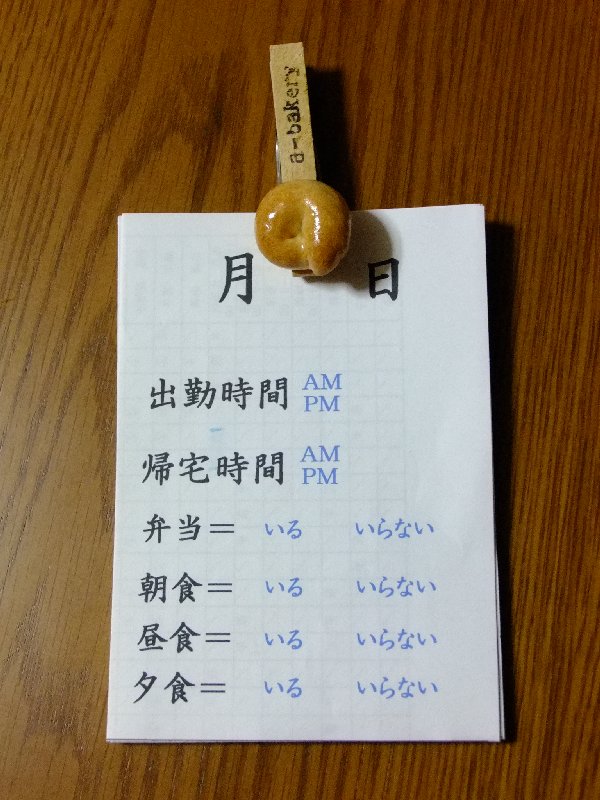 a-bakery
月 日
出勤時間 AM PM
帰宅時間 AM PM
弁当＝ いる いらない
朝食＝ いる いらない
昼食＝ いる いらない
夕食＝ いる いらない